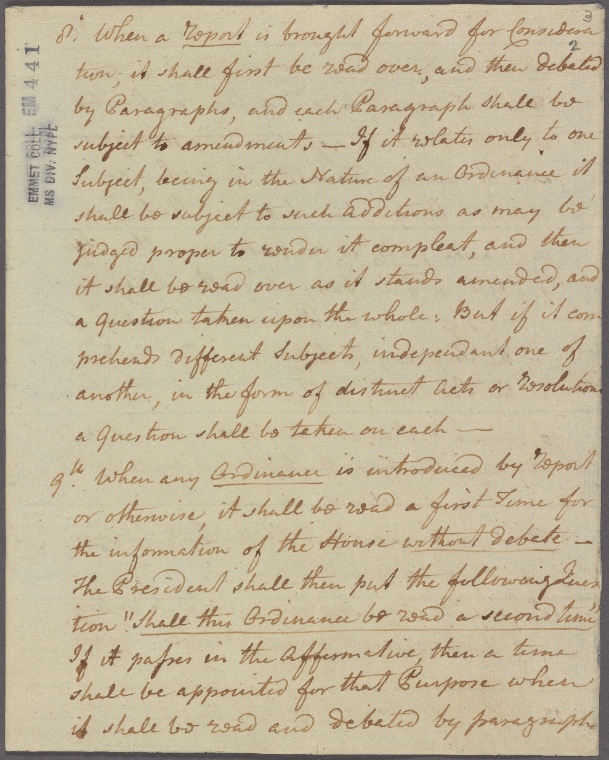 3
2
8. When a Report is brought forward for Considera
tion, it shall first be read over, and then debated
by Paragraphs, and each Paragraph shall be
subject to amendments — If it relates only to one
Subject, being in the Nature of an Ordinance it
shall be subject to such additions as may be
judged proper to render it compleat, and then
it shall be read over as it stands amended, and
a Question taken upon the whole: But if it com
prehends different Subjects, independant one of
another, in the form of distinct Acts or Resolutions
a Question shall be taken on each —
9th When any Ordinance is introduced by report
or otherwise, it shall be read a first Time for
the information of the House without debate —
The President shall then put the following Ques
tion "Shall this Ordinance be read a second time"
If it passes in the Affirmative, then a time
shall be appointed for that Purpose when
it shall be read and debated by paragraph
EMMET COLL. EM 441
MS DIV. NYPL